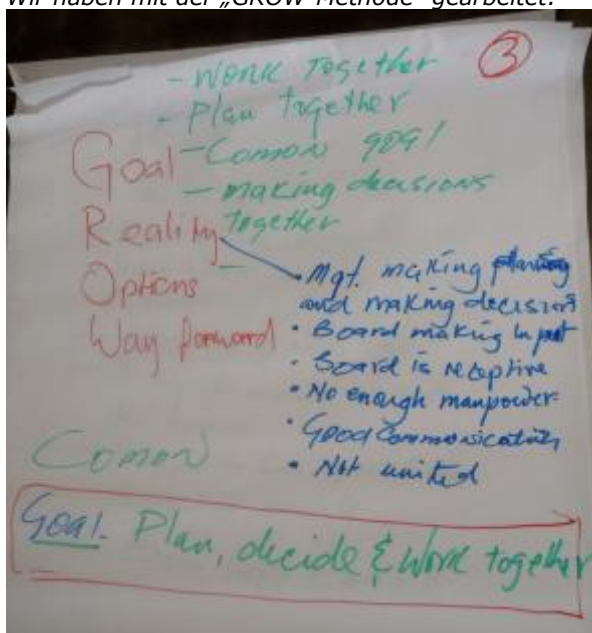 Wir haben mit der „GROW-Methode“ gearbeitet:
3
- Work Together
- Plan together
Goal - Comon goal
- making decisions
Reality together
Options -
Way forward
• Mgt. making planning
and making decision
• Board making input
• Board is receptive
• No enough manpower
• Good Communication
• Not united
Comon
Goal. Plan, decide & Work together